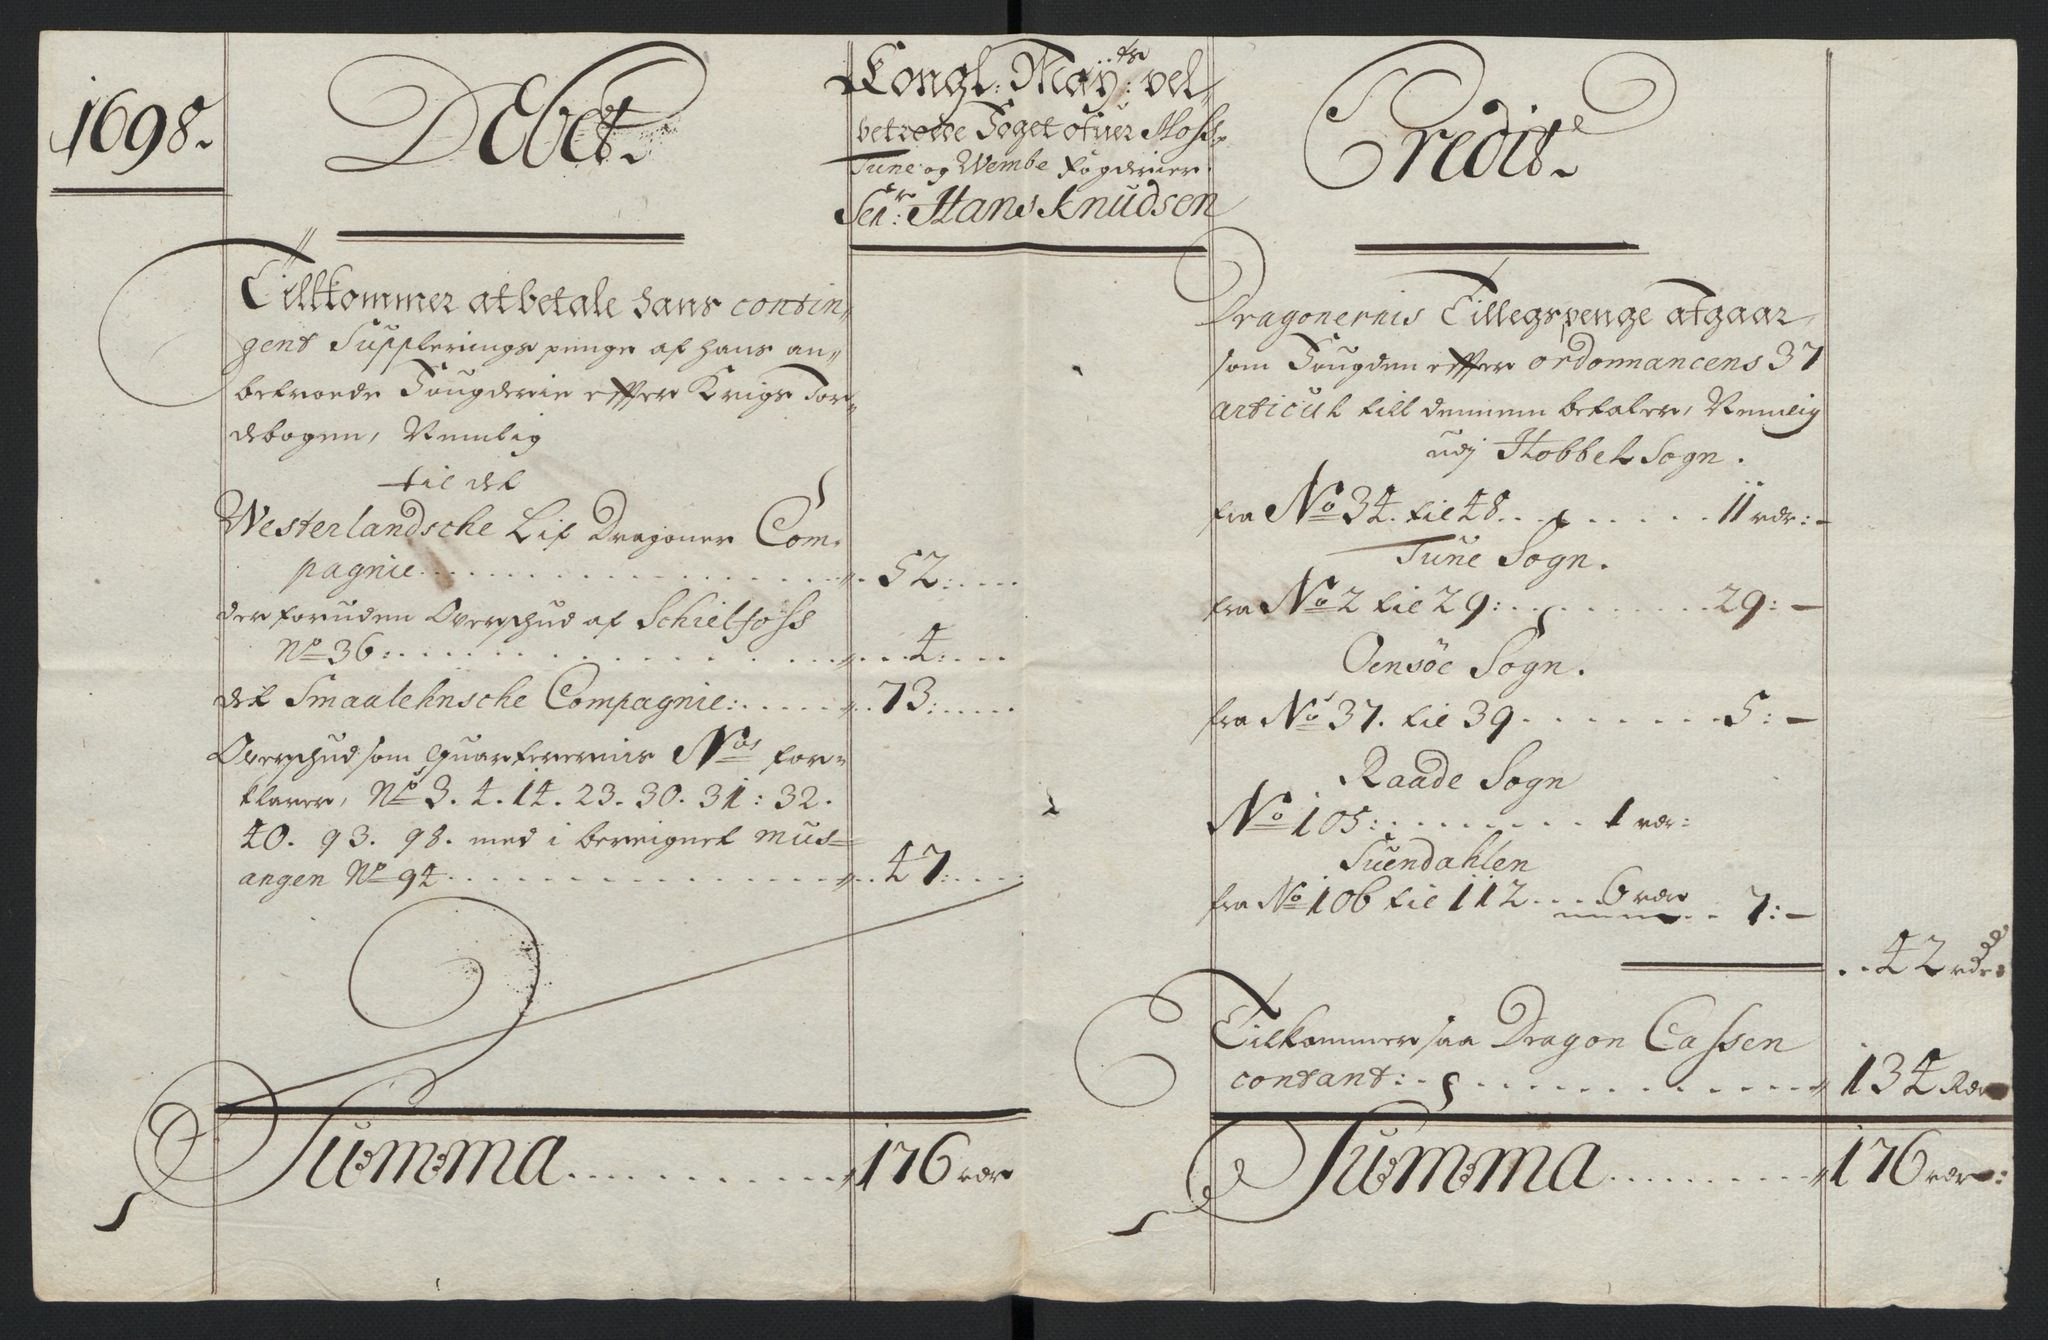 1698.
Debet.
Kongl: May:ts vel-
betroede Foget ofuer Moss
Tune og Wembe fogderier.
Sen:r Hans Knudsen
Credit.
Tillkommer at betale hans contin-
gent Supplerings penge af hans an-
betroede Fougderie effter Krigs Jor-
debogen, Nemlig
til det
Westerlandsche Lif Dragoner Com-
pagnie . . . 52:
der foruden Overschud af Schieltofs
No 36: . . . 4:
det Smaalehnsche Compagnie: . . . 73:
Overschud som quarterernis Nos for-
klarer, No 3. 4. 14. 23. 30. 31: 32.
40. 93. 98. med i bereignet mus-
angen No 94 . . . 47:
Summa . . . 176 rdr
Dragonernis Tillegspenge Atgaar
som Fougden effter ordonnancens 37
articul till dennem betaler, Nemlig
udj Hobbel Sogn.
fra No 34. til 48 . . . 11 rdr: -
Tune Sogn.
fra No 2 til 29: . . . 29: -
Oensöe Sogn.
fra No 37. til 39 . . . 5: -
Raade Sogn
No 105: . . . 1 rdr:
Suendahlen
fra No 106 til 112 . . . 6 rdr . . 7: -
. . 42 rdr:
Tilkommer saa Dragon Cassen
contant: . . . 134 Rdr
Summa . . . 176 rdr: